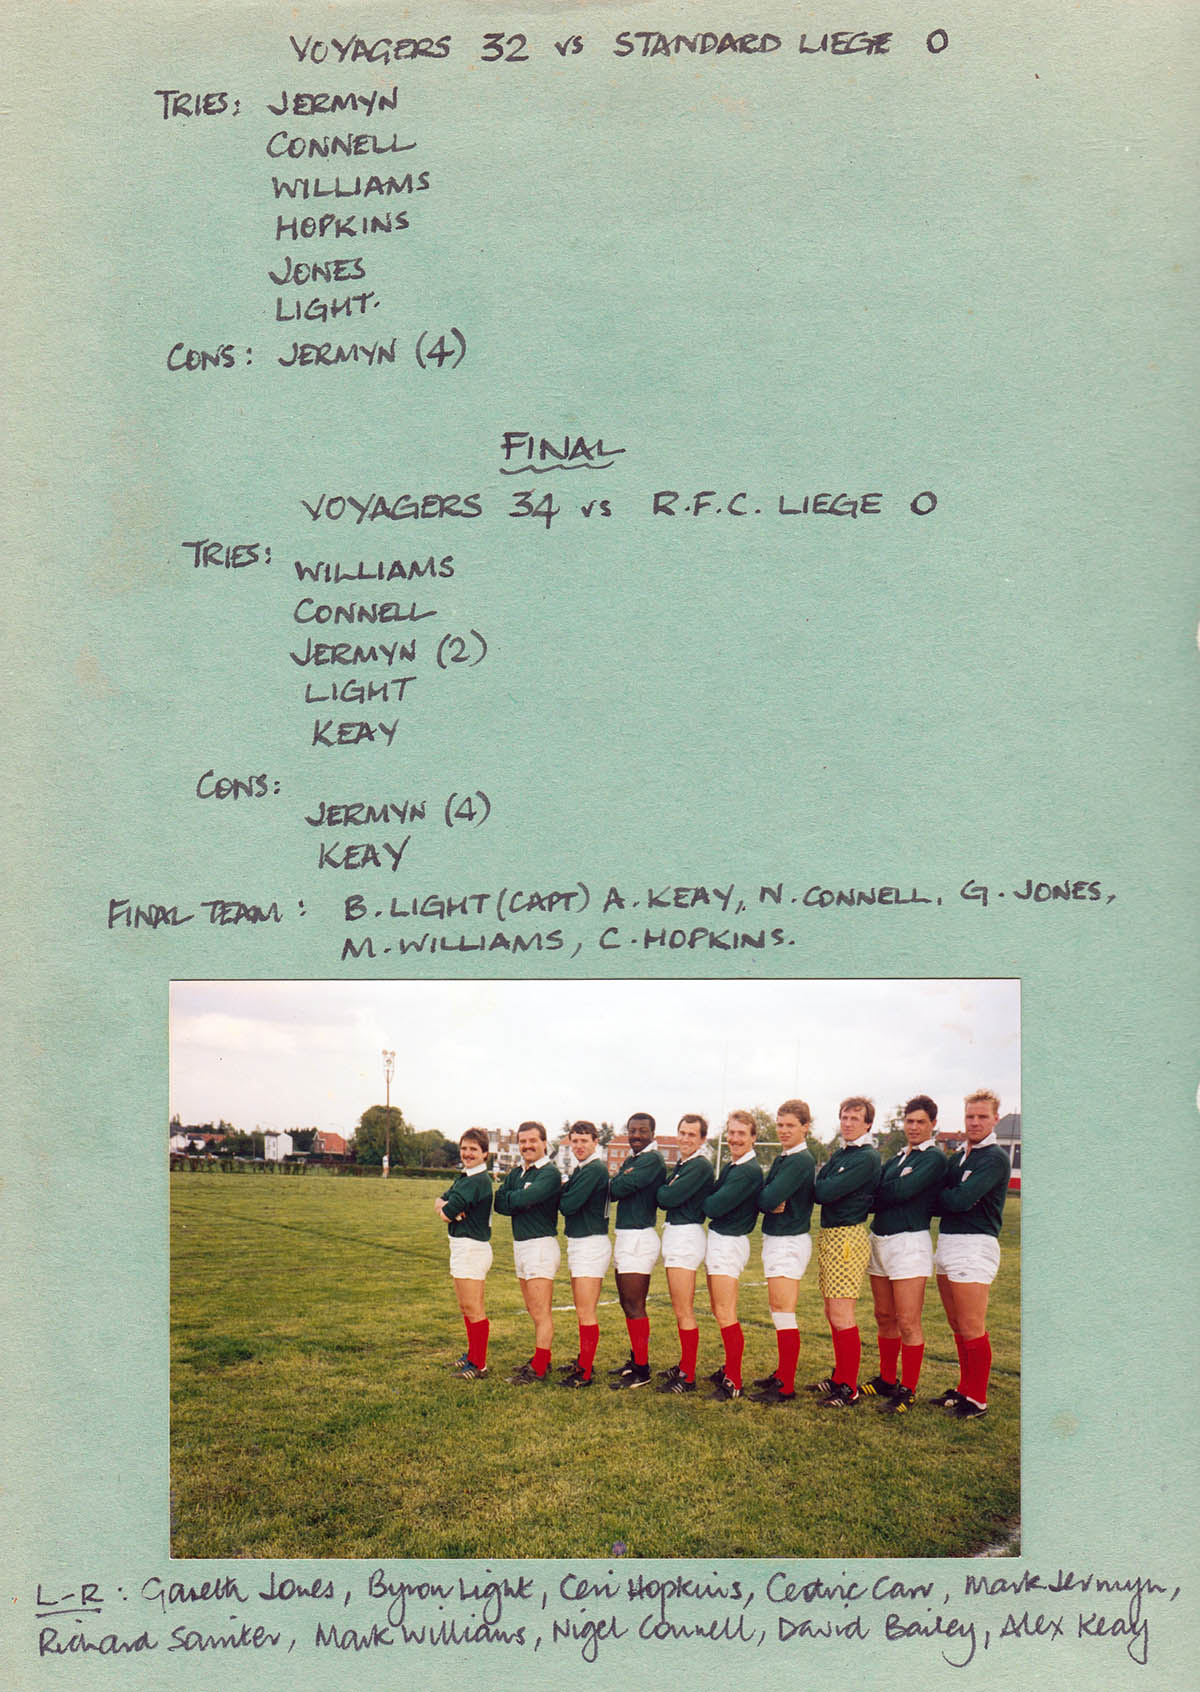 VOYAGERS 32 vs STANDARD LIEGE 0
TRIES: JERMYN
CONNELL
WILLIAMS
HOPKINS
JONES
LIGHT.
CONS: JERMYN (4)
FINAL
VOYAGERS 34 vs R.F.C. LIEGE 0
TRIES: WILLIAMS
CONNELL
JERMYN (2)
LIGHT
KEAY
CONS:
JERMYN (4)
KEAY
FINAL TEAM: B. LIGHT (CAPT) A. KEAY, N. CONNELL, G. JONES,
M. WILLIAMS, C. HOPKINS.
L-R: Gareth Jones, Byron Light, Ceri Hopkins, Cedric Carr, Mark Jermyn,
Richard Mark Williams, Nigel Connell, David Bailey, Alex Keay